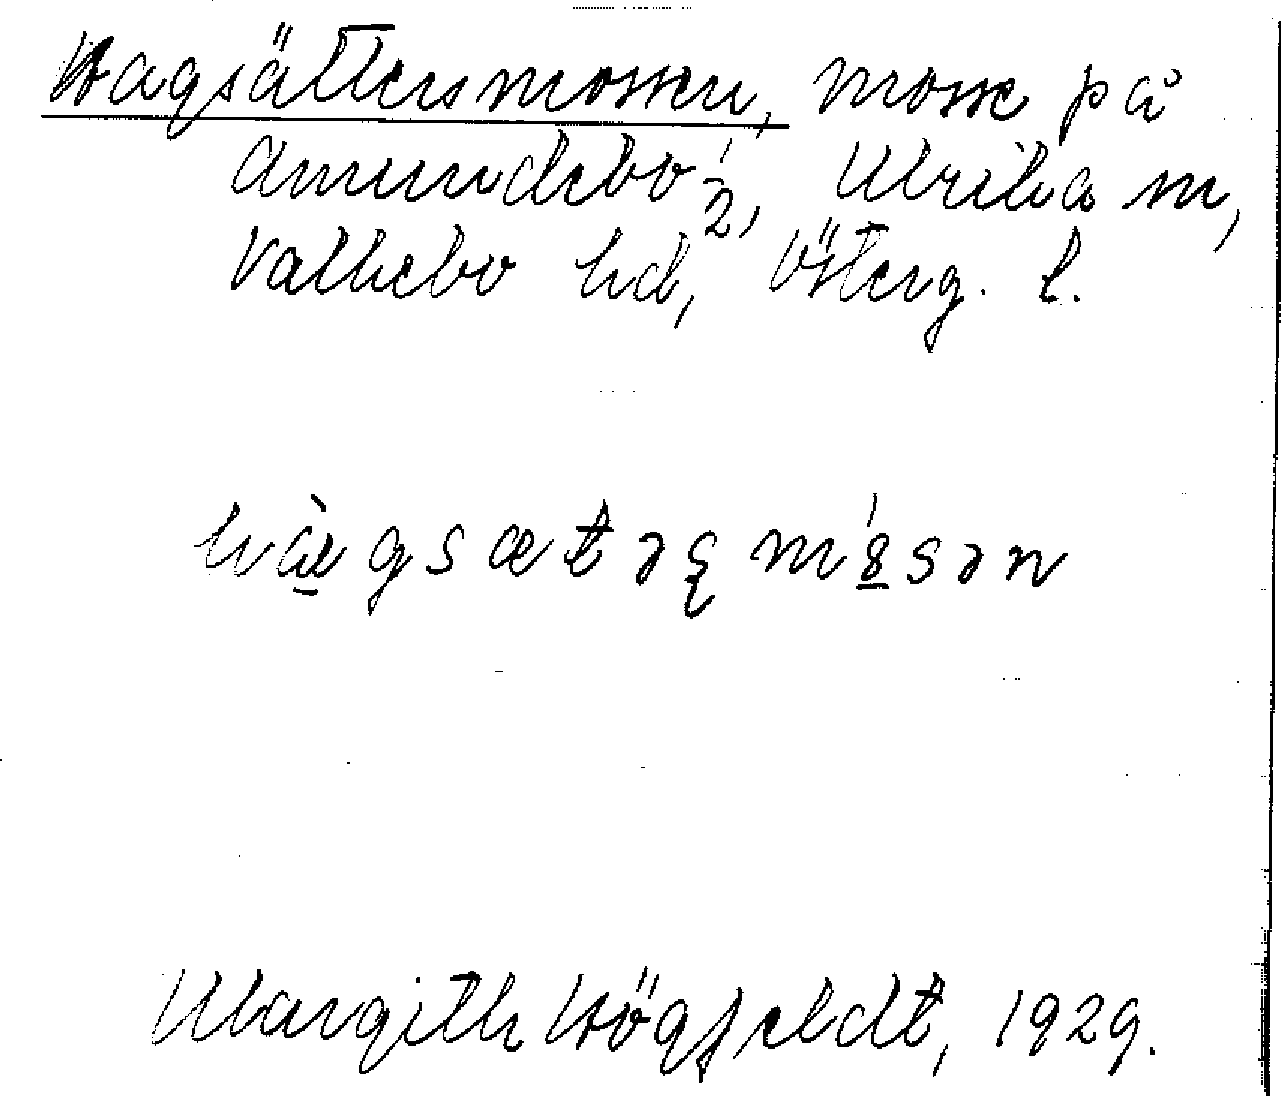 Hagsättersmossen, mosse på
Amundebo ½, Ulrika sn,
Valkebo hd, Österg. l.
hàgsætəʂmósən
Margith Högfeldt, 1929.